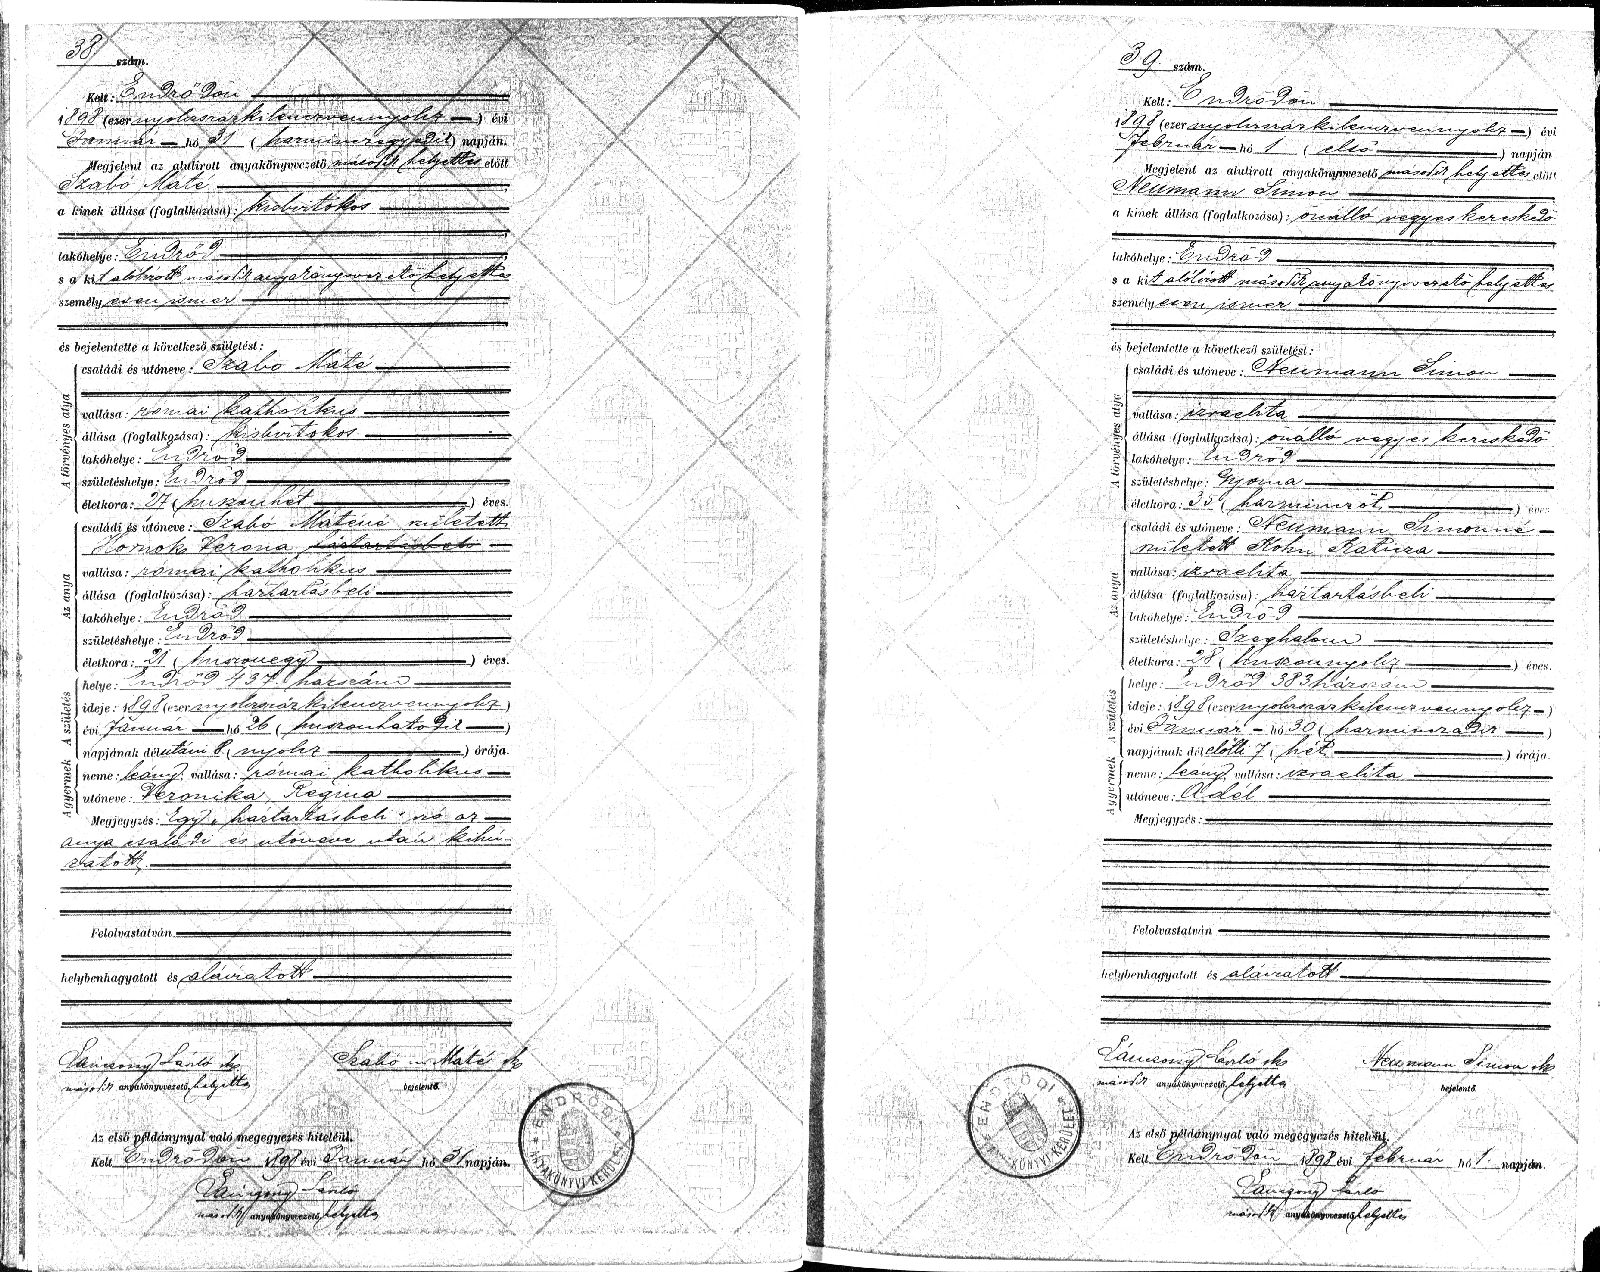 38 szám.
Kelt: Endrődön
1898 (ezer nyolczszázkilenczvennyolcz) évi
Január hó 31 (harminczegyedik) napján.
Megjelent az alulirott anyakönyvvezető másodk helyettes előtt
Szabó Máté
a kinek állása (foglalkozása): kisbirtokos
lakóhelye: Endrőd
s a kit alólirott másodk anyakönyvvezető helyettes
személyesen ismer
és bejelentette a következő születést:
A törvényes atya
családi és utóneve: Szabo Máté
vallása: római katholikus
állása (foglalkozása): kisbirtokos
lakóhelye: Endrőd
születéshelye: Endrőd
életkora: 27 (huszonhét) éves.
Az anya
családi és utóneve: Szabó Máténé született
Hornok Verona háztartásbeli
vallása: római katholikus
állása (foglalkozása): háztartásbeli
lakóhelye: Endrőd
születéshelye: Endrőd
életkora: 21 (huszonegy) éves.
A születés
helye: Endrőd 437. házszám
ideje: 1898 (ezer nyolczszázkilenczvennyolcz)
évi Január hó 26 (huszonhatodik)
napjának délutáni 8 (nyolcz) órája.
A gyermek
neme: leány, vallása: római katholikus
utóneve: Veronika, Regina
Megjegyzés: Egy „háztartásbeli" szó az
anya családi és utóneve után kihú-
zatott,
Felolvastatván
helybenhagyatott és aláiratott
Lánczony László sk
másodk anyakönyvvezető helyettes
Szabó Máté sk
bejelentő.
Az első példánynyal való megegyezés hiteléül.
Kelt Endrődön 1898 évi Január hó 31 napján.
Lánczony László
másodk anyakönyvvezető helyettes
ENDRŐDI ANYAKÖNYVI KERÜLET
39. szám.
Kelt: Endrődön
1898 (ezer nyolczszázkilenczvennyolcz) évi
Február hó 1 (első) napján
Megjelent az alulirott anyakönyvvezető másodk helyettes előtt
Neumann Simon
a kinek állása (foglalkozása): önálló vegyes kereskedő
lakóhelye: Endrőd
s a kit alólirott másodk anyakönyvvezető helyettes
személyesen ismer
és bejelentette a következő születést:
A törvényes atya
családi és utóneve: Neumann Simon
vallása: izraelita
állása (foglalkozása): önálló vegyes kereskedő
lakóhelye: Endrőd
születéshelye: Gyoma
életkora: 35 (harminczöt) éves.
Az anya
családi és utóneve: Neumann Simonné
született Kohn Katicza
vallása: izraelita
állása (foglalkozása): háztartásbeli
lakóhelye: Endrőd
születéshelye: Szeghalom
életkora: 28 (huszonnyolcz) éves.
A születés
helye: Endrőd 383 házszám
ideje: 1898 (ezer nyolczszázkilenczvennyolcz)
évi Január hó 30 (harminczadik)
napjának délelőtti 7 (hét) órája.
A gyermek
neme: leány, vallása: izraelita
utóneve: Adél
Megjegyzés:
Felolvastatván
helybenhagyatott és aláiratott
Lánczony László sk
másodk anyakönyvvezető helyettes
Neumann Simon sk
bejelentő.
Az első példánynyal való megegyezés hiteléül.
Kelt Endrődön 1898 évi február hó 1. napján.
Lánczony László
másodk anyakönyvvezető helyettes
ENDRŐDI ANYAKÖNYVI KERÜLET